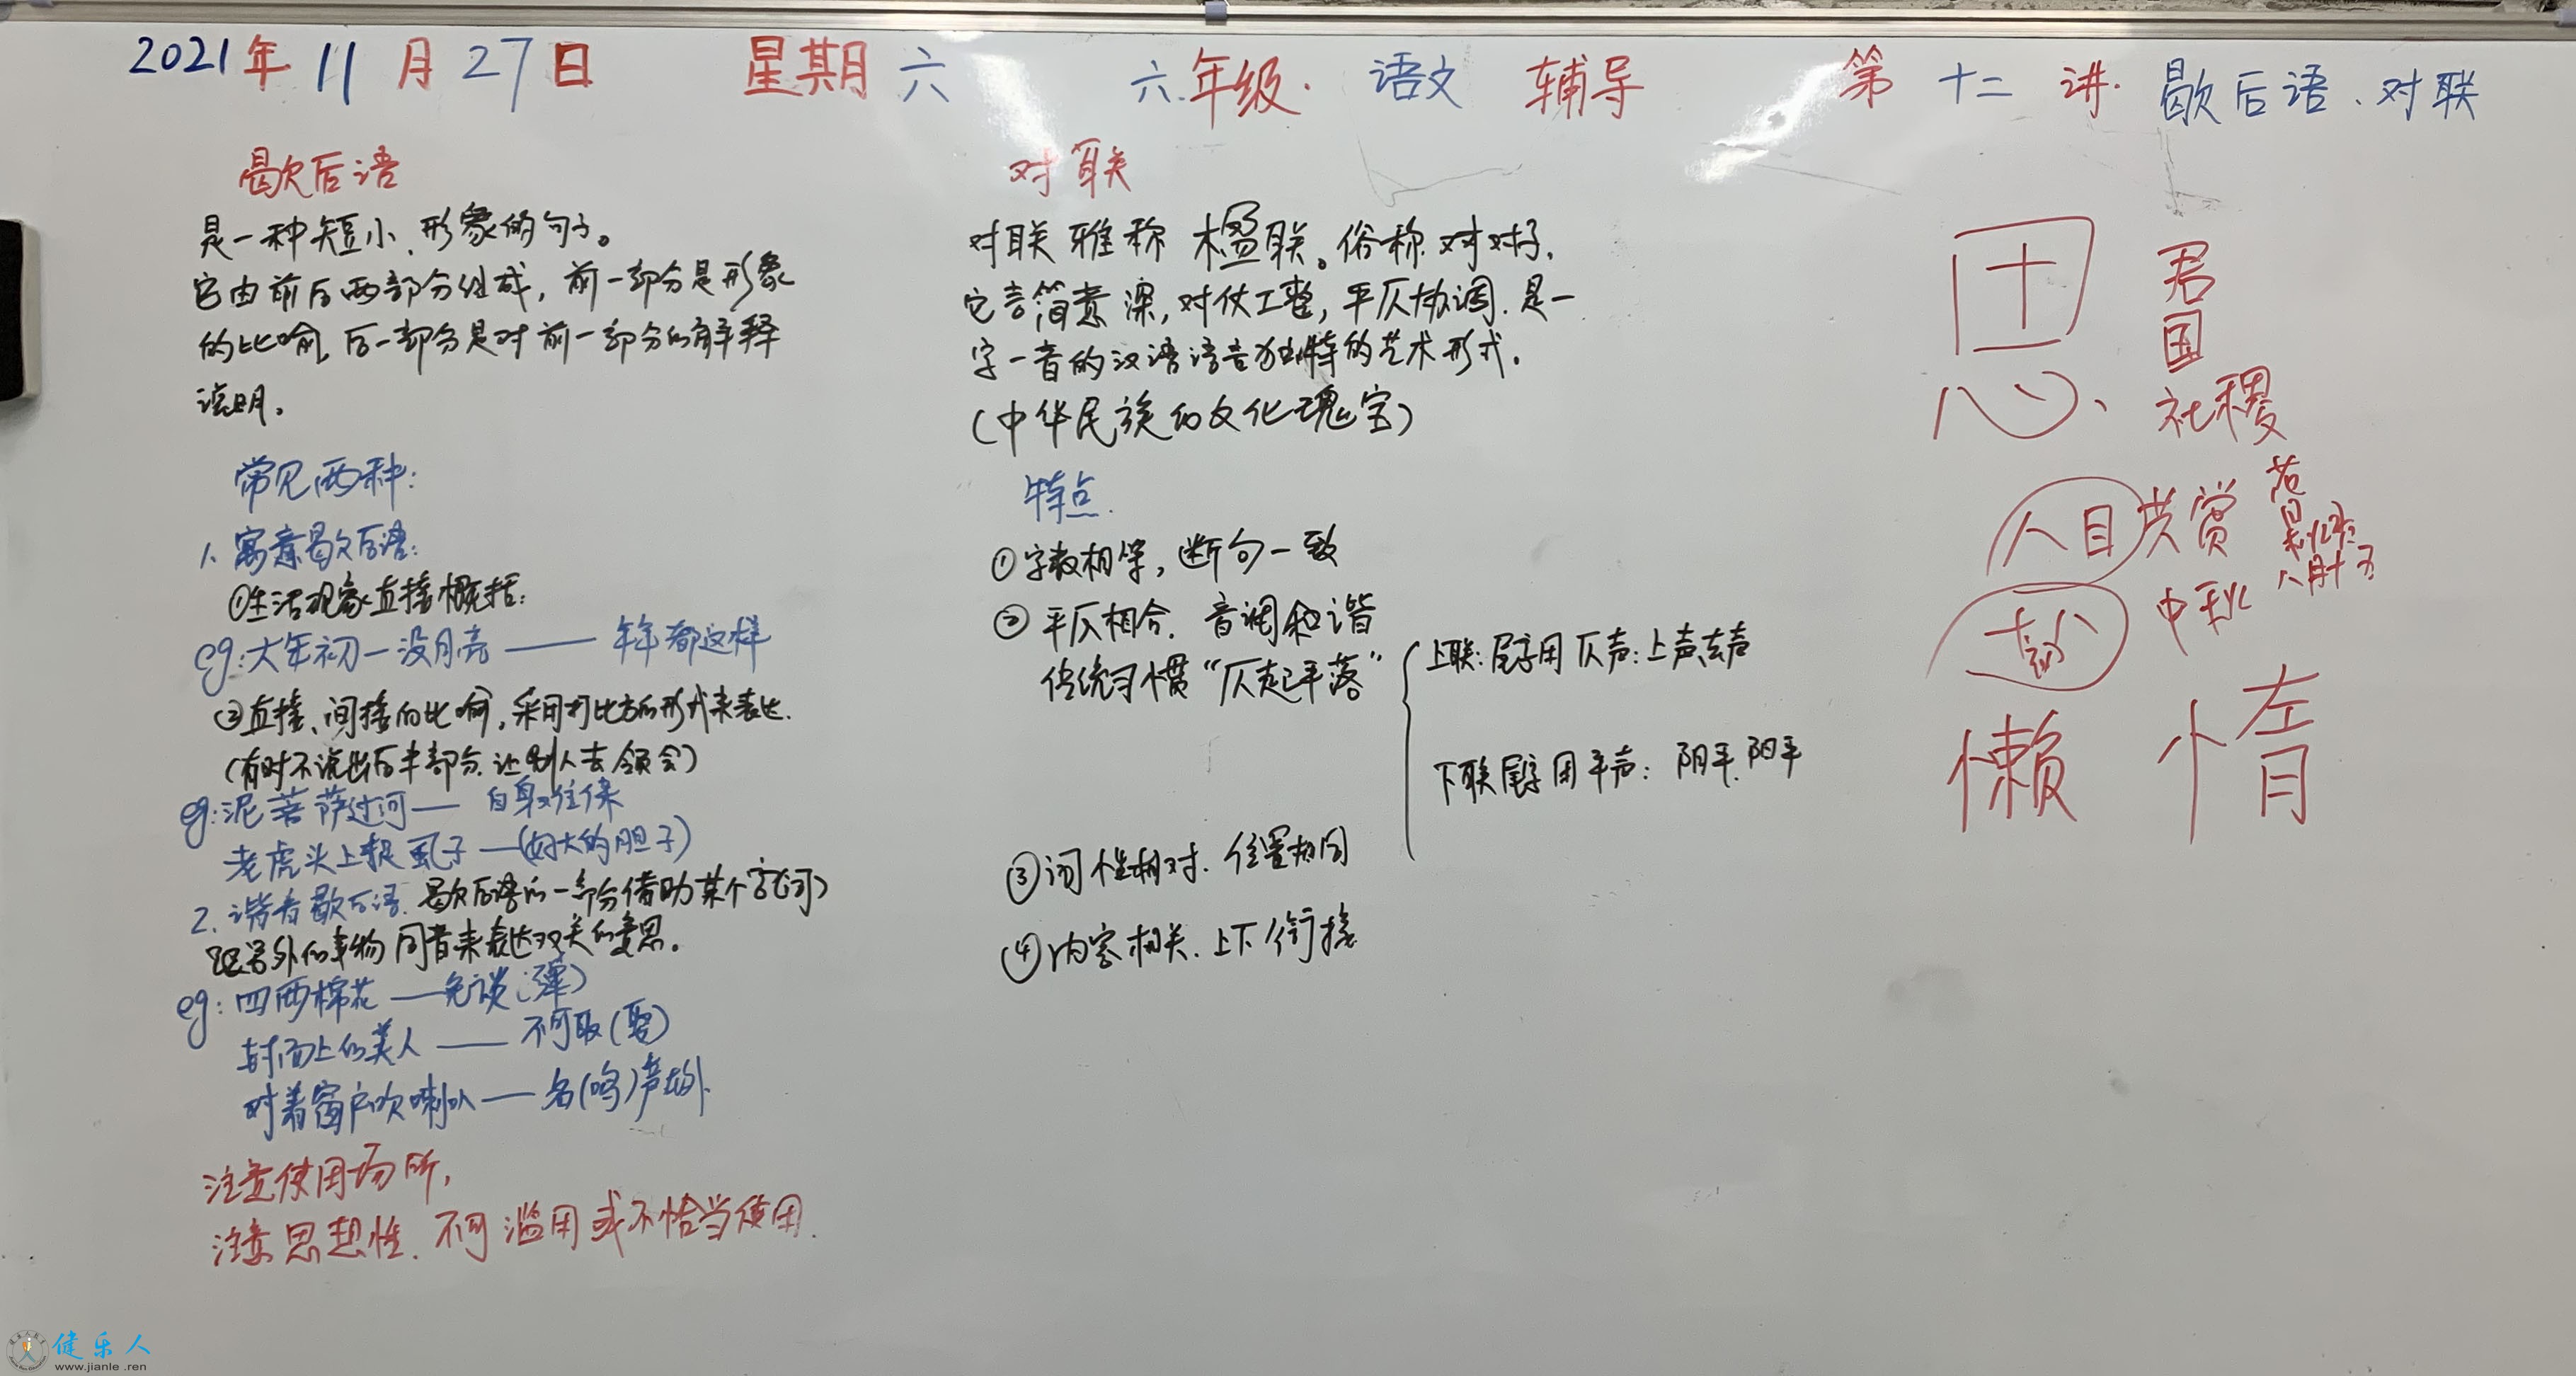 2021年11月27日 星期六 六年级. 语文 辅导 第十二讲. 歇后语、对联
歇后语
是一种短小、形象的句子。
它由前后两部分组成，前一部分是形象
的比喻，后一部分是对前一部分的解释
说明。
常见两种：
1、寓意歇后语：
①生活现象直接概括：
eg：大年初一没月亮——年年都这样
②直接、间接的比喻，采用打比方的形式来表达.
（有时不说出后半部分，让别人去领会）
eg：泥菩萨过河——自身难保
老虎头上捉虱子—（好大的胆子）
2. 谐音歇后语. 歇后语的一部分借助某个字（词）
跟另外的事物同音来表达双关的意思。
eg：四两棉花——免谈（弹）
封面上的美人——不可取（娶）
对着窗户吹喇叭——名（鸣）声在外.
注意使用场所，
注意思想性. 不可滥用或不恰当使用.
对联
对联雅称 楹联。俗称对对子.
它言简意深，对仗工整，平仄协调. 是一
字一音的汉语语言独特的艺术形式.
（中华民族的文化瑰宝）
特点.
①字数相等，断句一致
②平仄相合. 音调和谐
传统习惯“仄起平落”
上联：尾字用仄声：上声、去声
下联尾字用平声：阴平、阳平
③词性相对. 位置相同
④内容相关. 上下衔接
君
国
社稷
心、
人目共赏
中秋
八月十五
懒
左
忄月
健乐人
www.jianle.ren